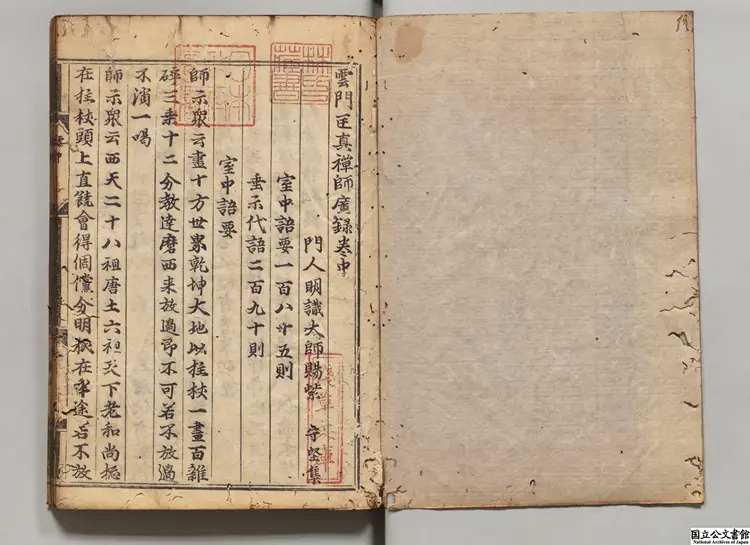 雲門匡真禅師廣録巻中
門人明識大師賜紫 守堅集
室中語要一百八十五則
垂示代語二百九十則
室中語要
師示眾云盡十方世界乾坤大地以拄杖一畫百雜
碎三乗十二分教達磨西来放過即不可若不放過
不消一喝
師示眾云西天二十八祖唐土六祖天下老和尚捴
在拄杖頭上直饒會得倜儻分明秖在半途若不放
林氏藏書
国立公文書館
National Archives of Japan